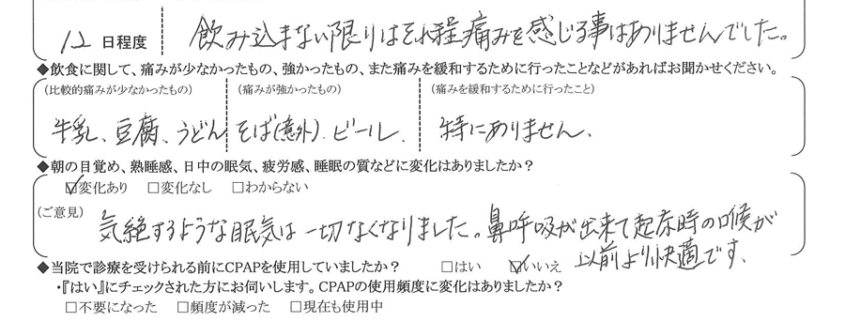 12 日程度 飲み込まない限りはそれ程痛みを感じる事はありませんでした。
◆飲食に関して、痛みが少なかったもの、強かったもの、また痛みを緩和するために行ったことなどがあればお聞かせください。
(比較的痛みが少なかったもの) (痛みが強かったもの) (痛みを緩和するために行ったこと)
牛乳、豆腐、うどん そば(意外)、ビール、 特にありません、
◆朝の目覚め、熟睡感、日中の眠気、疲労感、睡眠の質などに変化はありましたか?
☑変化あり □変化なし □わからない
(ご意見) 気絶するような眠気は一切なくなりました。鼻呼吸が出来て起床時の喉が
以前より快適です、
◆当院で診療を受けられる前にCPAPを使用していましたか? □はい ☑いいえ
・『はい』にチェックされた方にお伺いします。CPAPの使用頻度に変化はありましたか?
□不要になった □頻度が減った □現在も使用中